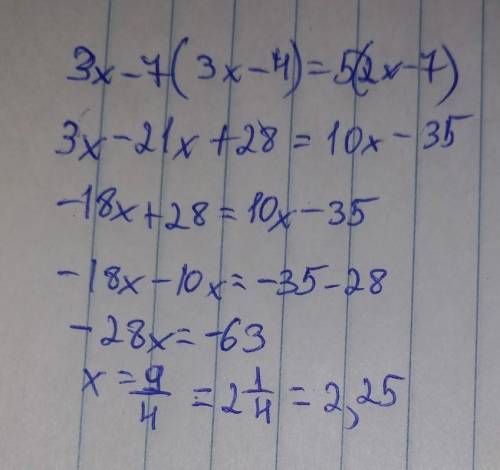 3x-7(3x-4)=5(2x-7)
3x-21x+28=10x-35
-18x+28=10x-35
-18x-10x=-35-28
-28x=-63
x=9/4=2 1/4=2,25